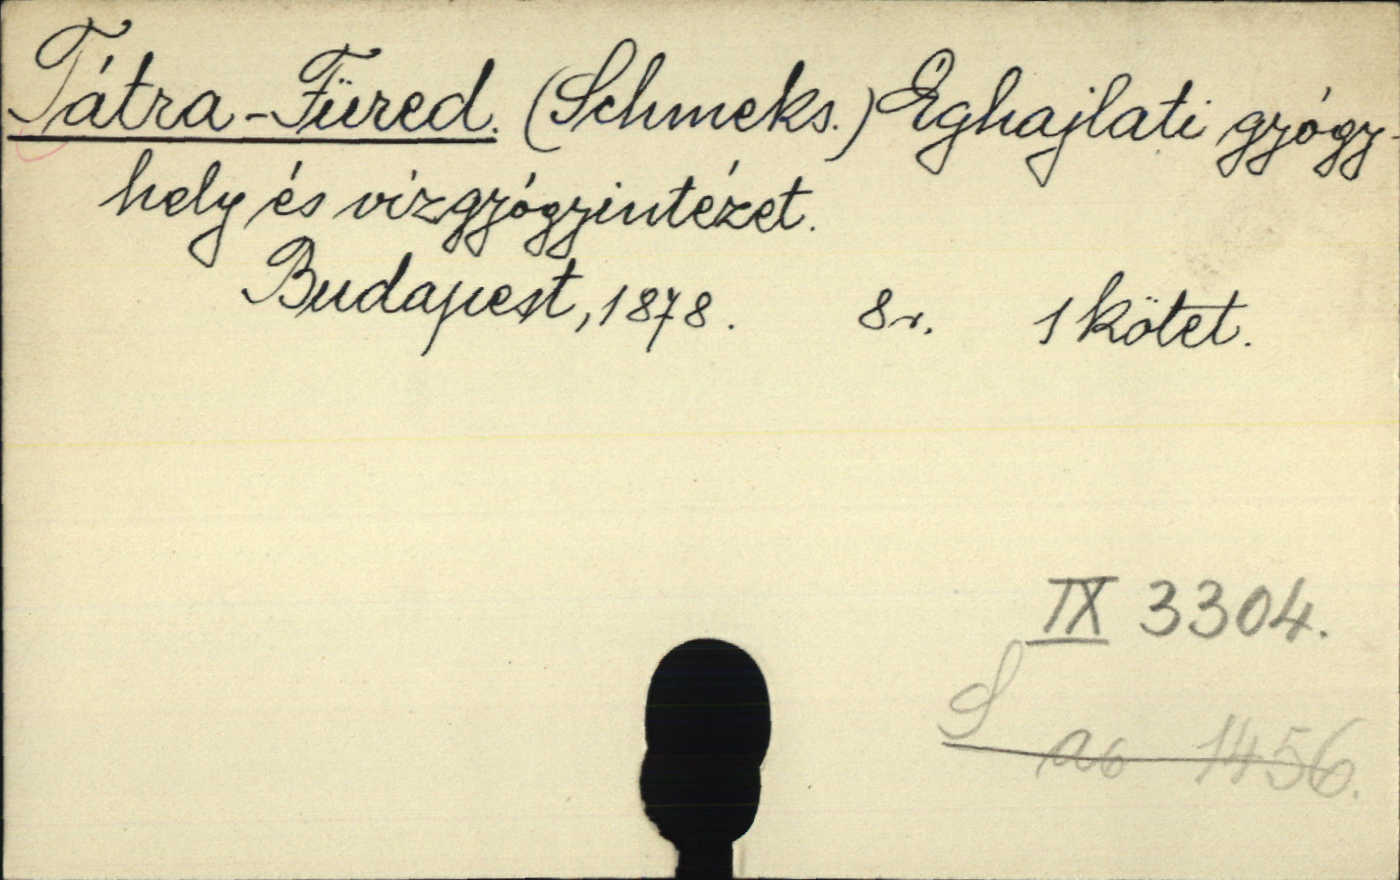 Tátra-Füred. (Schmeks.) Éghajlati gyógy-
hely és vizgyógyintézet.
Budapest, 1878. 8r. 1 kötet.
IX 3304.
S ab 1456.